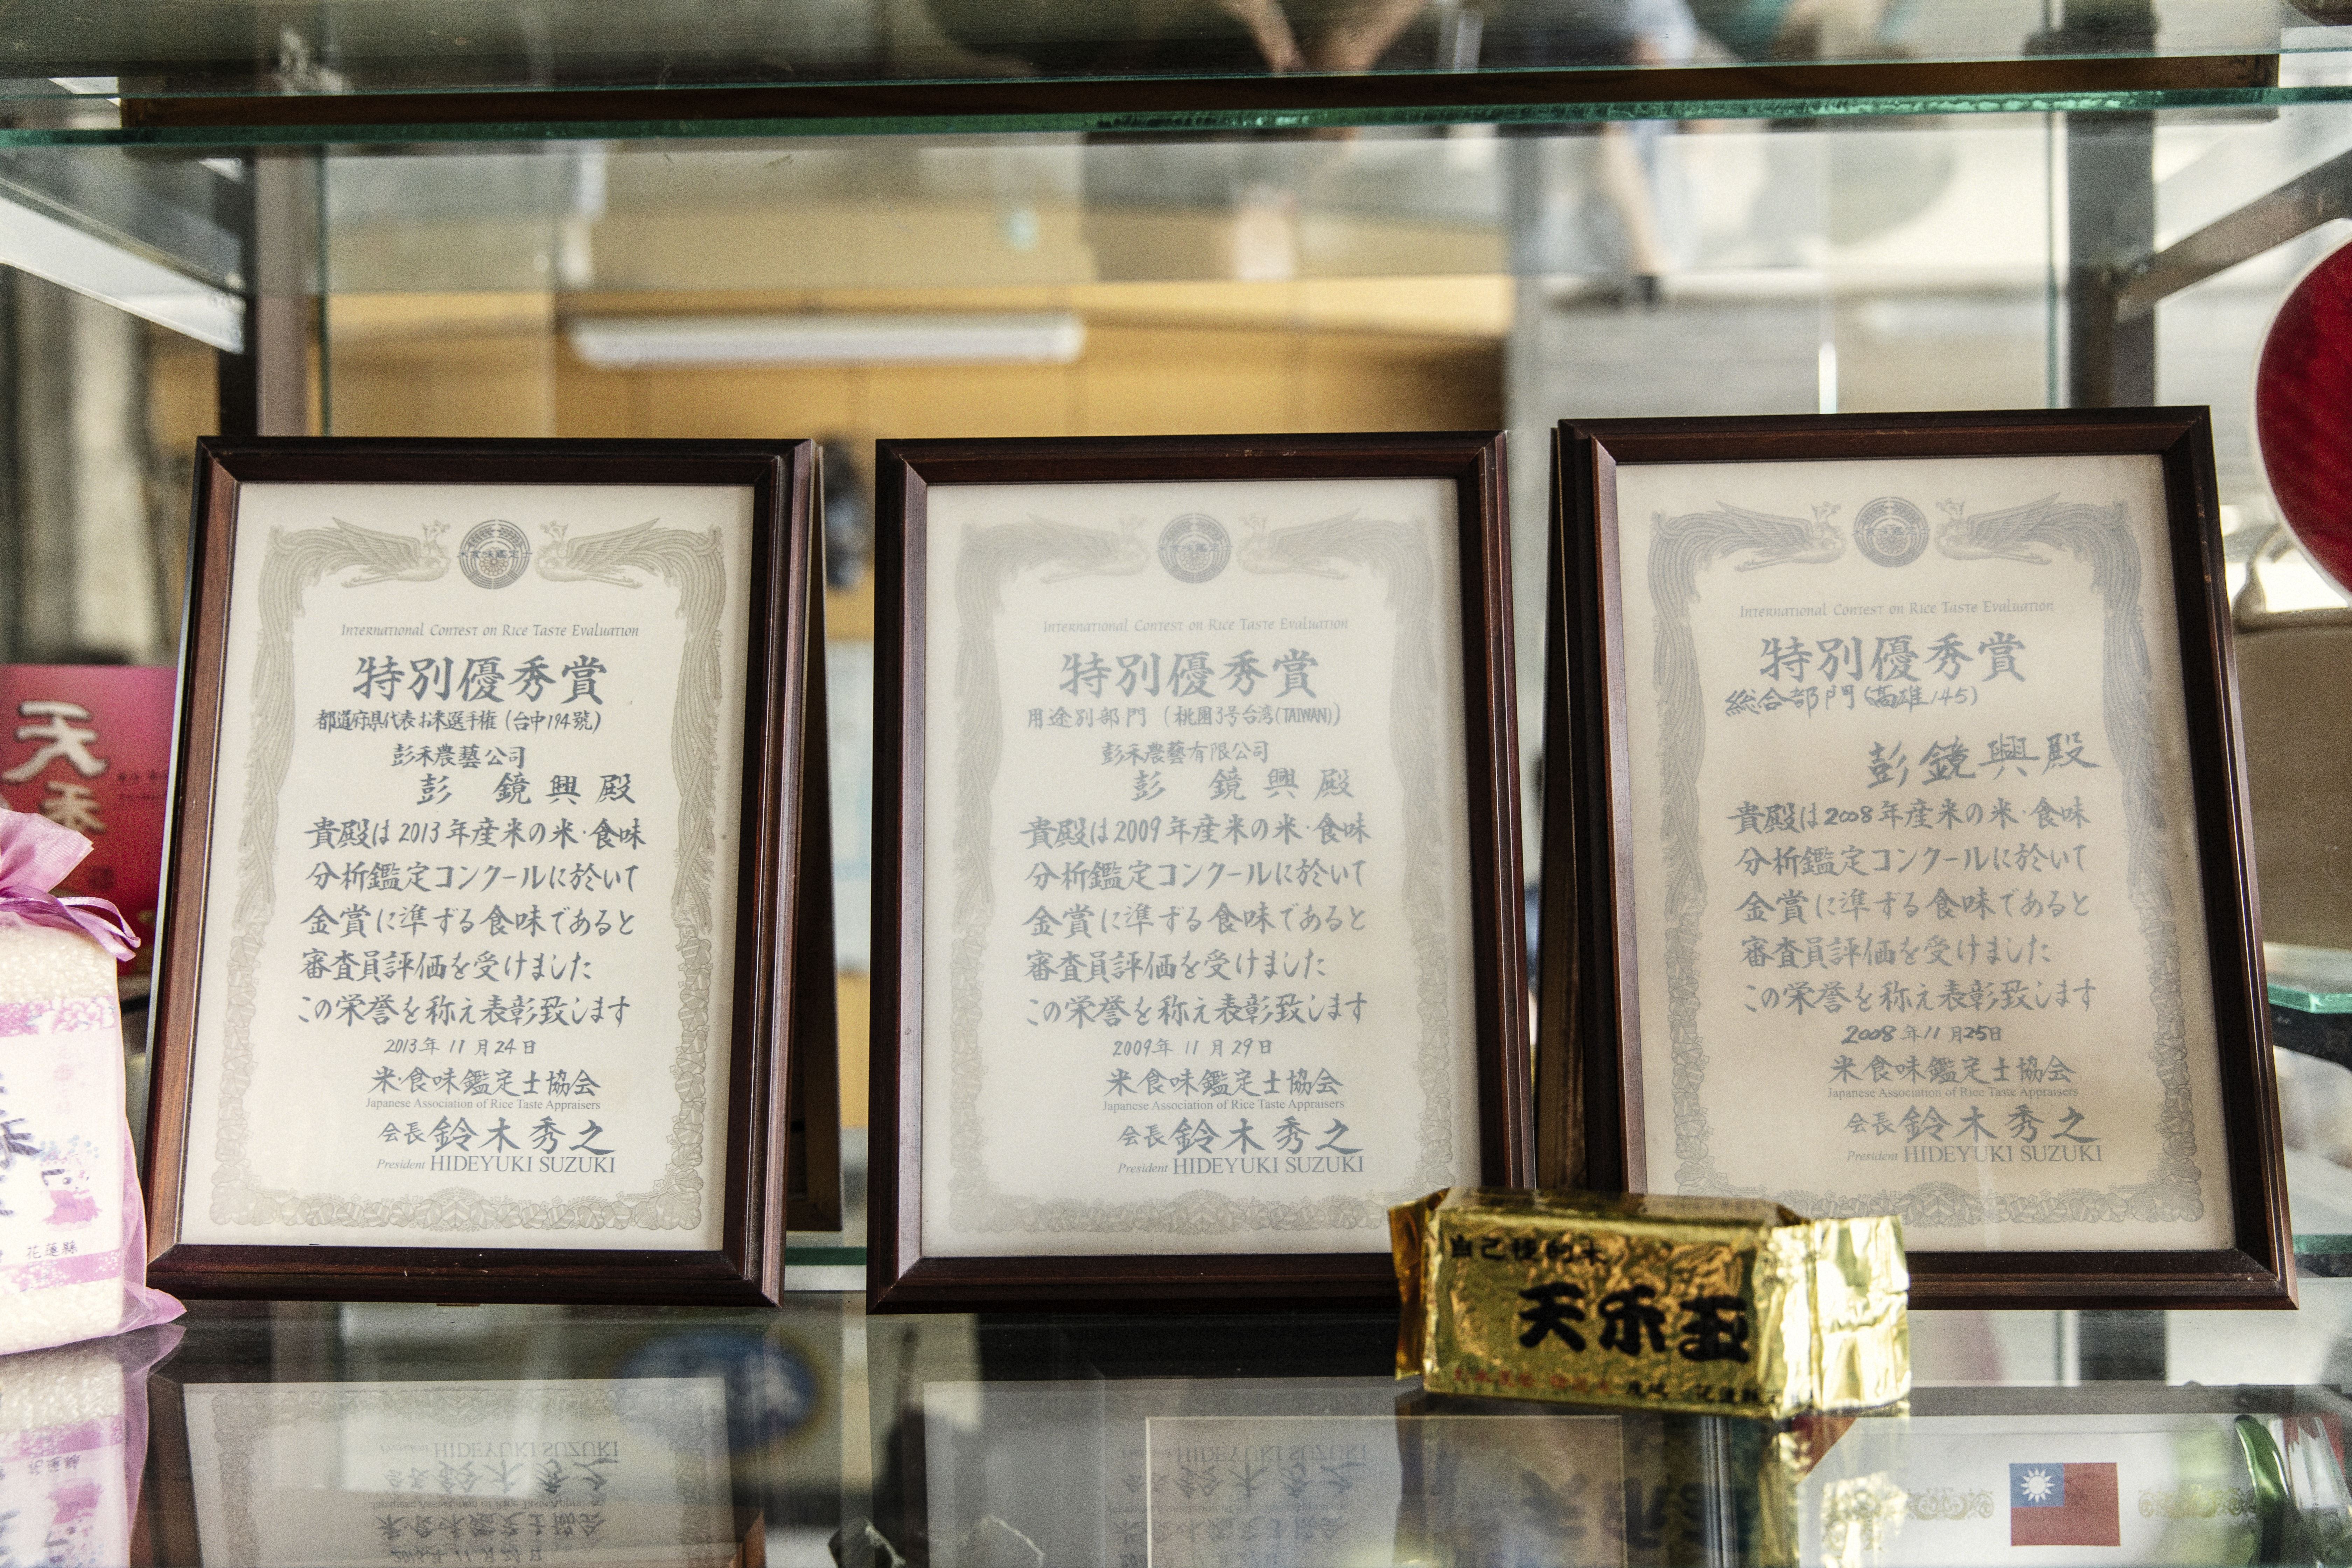 International Contest on Rice Taste Evaluation
特別優秀賞
都道府県代表お米選手権(台中194號)
彭禾農藝公司
彭 鏡興殿
貴殿は2013年産米の米・食味
分析鑑定コンクールに於いて
金賞に準ずる食味であると
審査員評価を受けました
この栄誉を称え表彰致します
2013年11月24日
米・食味鑑定士協会
Japanese Association of Rice Taste Appraisers
会長 鈴木秀之
President HIDEYUKI SUZUKI
International Contest on Rice Taste Evaluation
特別優秀賞
用途別部門(桃園3号台湾(TAIWAN))
彭禾農藝有限公司
彭 鏡興殿
貴殿は2009年産米の米・食味
分析鑑定コンクールに於いて
金賞に準ずる食味であると
審査員評価を受けました
この栄誉を称え表彰致します
2009年11月29日
米・食味鑑定士協会
Japanese Association of Rice Taste Appraisers
会長 鈴木秀之
President HIDEYUKI SUZUKI
International Contest on Rice Taste Evaluation
特別優秀賞
総合部門(高雄145)
彭鏡興殿
貴殿は2008年産米の米・食味
分析鑑定コンクールに於いて
金賞に準ずる食味であると
審査員評価を受けました
この栄誉を称え表彰致します
2008年11月25日
米・食味鑑定士協会
Japanese Association of Rice Taste Appraisers
会長 鈴木秀之
President HIDEYUKI SUZUKI
天禾
花蓮縣
自己種的米
天禾玉